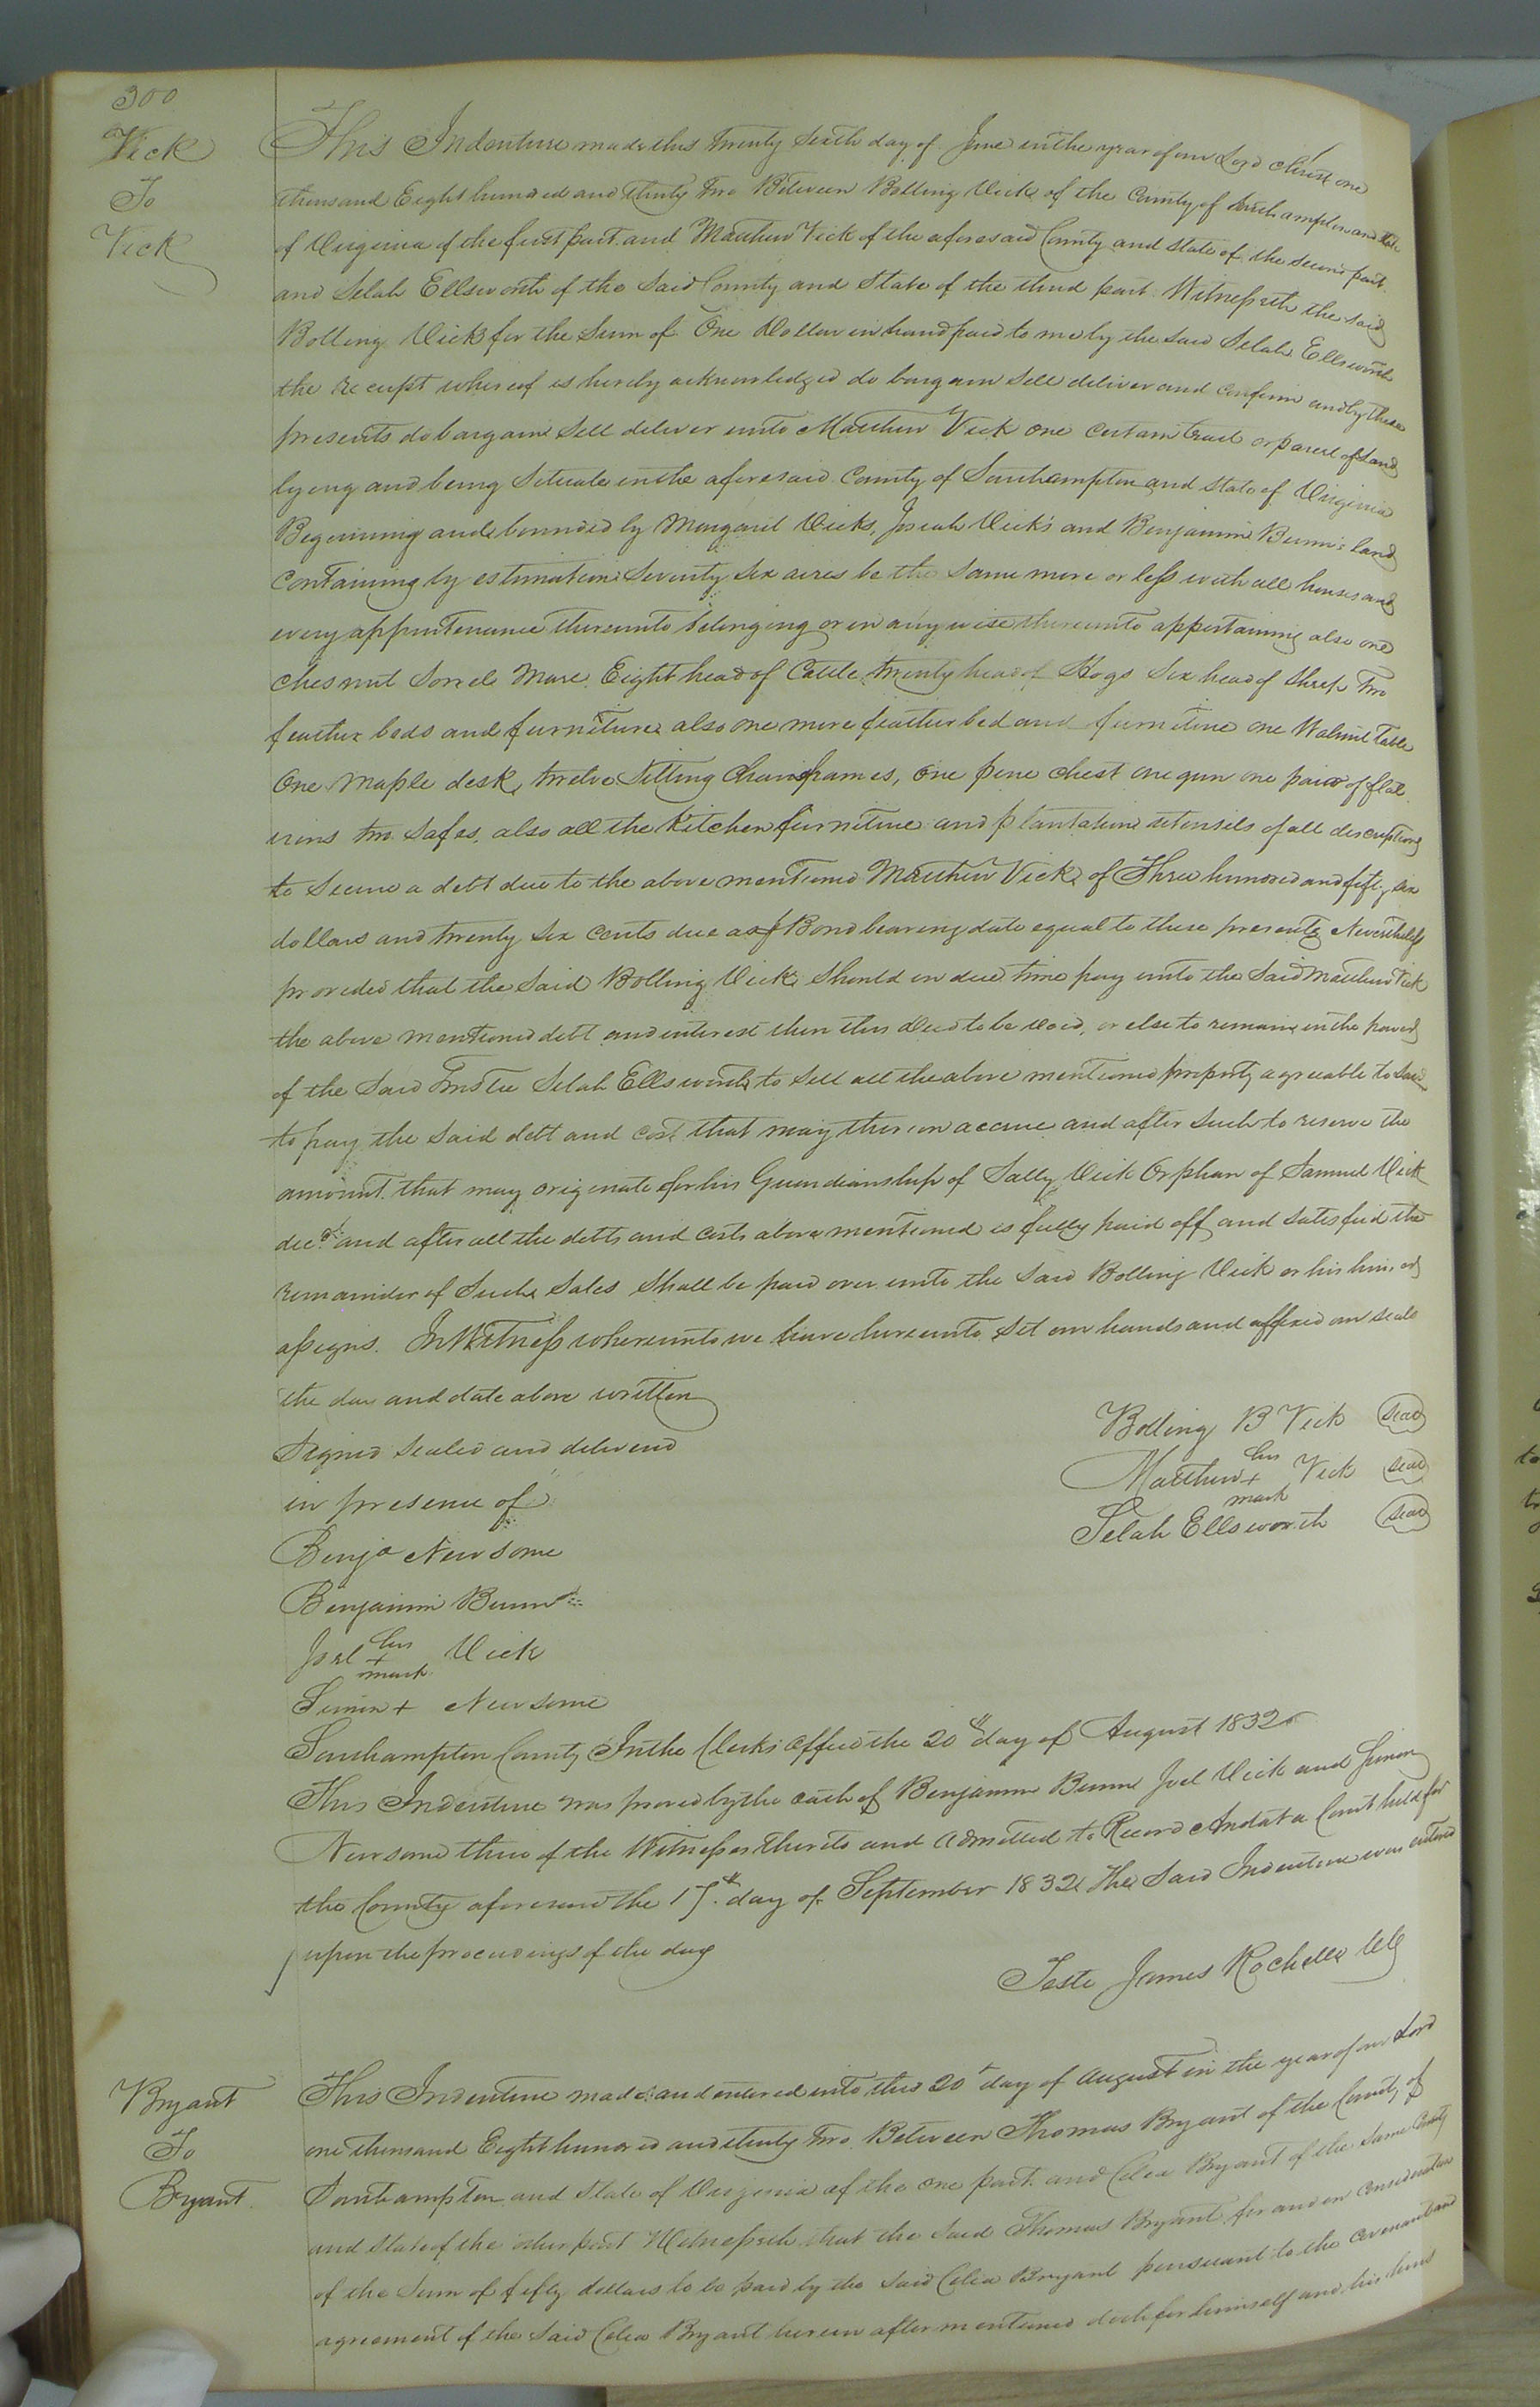 300
Vick
To
Vick
This Indenture made this twenty Sixth day of June in the year of our Lord Christ one
thousand Eight hundred and thirty two Between Bolling Vick of the County of Southampton and State
of Virginia of the first part and Matthew Vick of the aforesaid County and State of the second part
and Selah Ellsworth of the Said County and State of the third part Witnesseth the said
Bolling Vick for the Sum of One Dollar in hand paid to me by the said Selah Ellsworth
the receipt whereof is hereby acknowledged do bargain Sell deliver and confirm and by these
presents do bargain Sell deliver unto Matthew Vick one certain tract or parcel of Land
lying and being Situate in the aforesaid County of Southampton and State of Virginia
Beginning and bounded by Margaret Vicks, Josiah Vick's and Benjamin Bunn's land
Containing by estimation Seventy Six acres be the Same more or less with all houses and
every appurtenance thereunto belonging or in any wise thereunto appertaining also one
chesnut Sorrele Mare, Eight head of Cattle, twenty head of Hogs Six head of Sheep two
feather beds and furniture also one more feather bed and furniture one Walnut Table
One Maple desk, twelve Sitting Chair frames, one pine chest one gun one pair of flat
irons two Safes, also all the Kitchen furniture and plantation utensils of all discriptions
to Secure a debt due to the above mentioned Matthew Vick of Three hundred and fifty six
dollars and twenty Six Cents due as Bond bearing date equal to these presents Nevertheless
provided that the Said Bolling Vick Should in due time pay unto the Said Matthew Vick
the above mentioned debt and interest then this Deed to be void, or else to remain in the power
of the Said Trustee Selah Ellsworth to Sell all the above mentioned property agreeable to Law
to pay the Said debt and Cost that may thereon accrue and after Such to reserve the
amount that may originate for his Guardianship of Sally Vick Orphan of Samuel Vick
decd and after all the debts and Costs above mentioned is fully paid off and Satisfied the
remainder of Such Sales Shall be paid over unto the Said Bolling Vick or his heirs or
assigns. In Witness whereunto we have hereunto Set our hands and affixed our seals
the day and date above written
Signed Sealed and deliverd
in presence of
Bolling B Vick Seal
Matthew his + mark Vick Seal
Selah Ellsworth Seal
Benja Newsome
Benjamin Bunn
Joel his + mark Vick
Simon + Newsome
Southampton County In the Clerks Office the 20th day of August 1832
This Indenture was proved by the oath of Benjamin Bunn Joel Vick and Simon
Newsome three of the Witnesses thereto and Admitted to Record And at a Court held for
the County aforesaid the 17th day of September 1832 The Said Indenture was entered
upon the proceedings of the day
Teste James Rochelle
Bryant
To
Bryant
This Indenture made and entered into this 20th day of August in the year of our Lord
one thousand Eight hundred and thirty two. Between Thomas Bryant of the County of
Southampton and State of Virginia of the one part and Celia Bryant of the Same County
and State of the other part Witnesseth that the Said Thomas Bryant for and in Consideration
of the Sum of fifty dollars to be paid by the Said Celia Bryant pursuant to the Covenant and
agreement of the Said Celia Bryant herein after mentioned doth for himself and his heirs